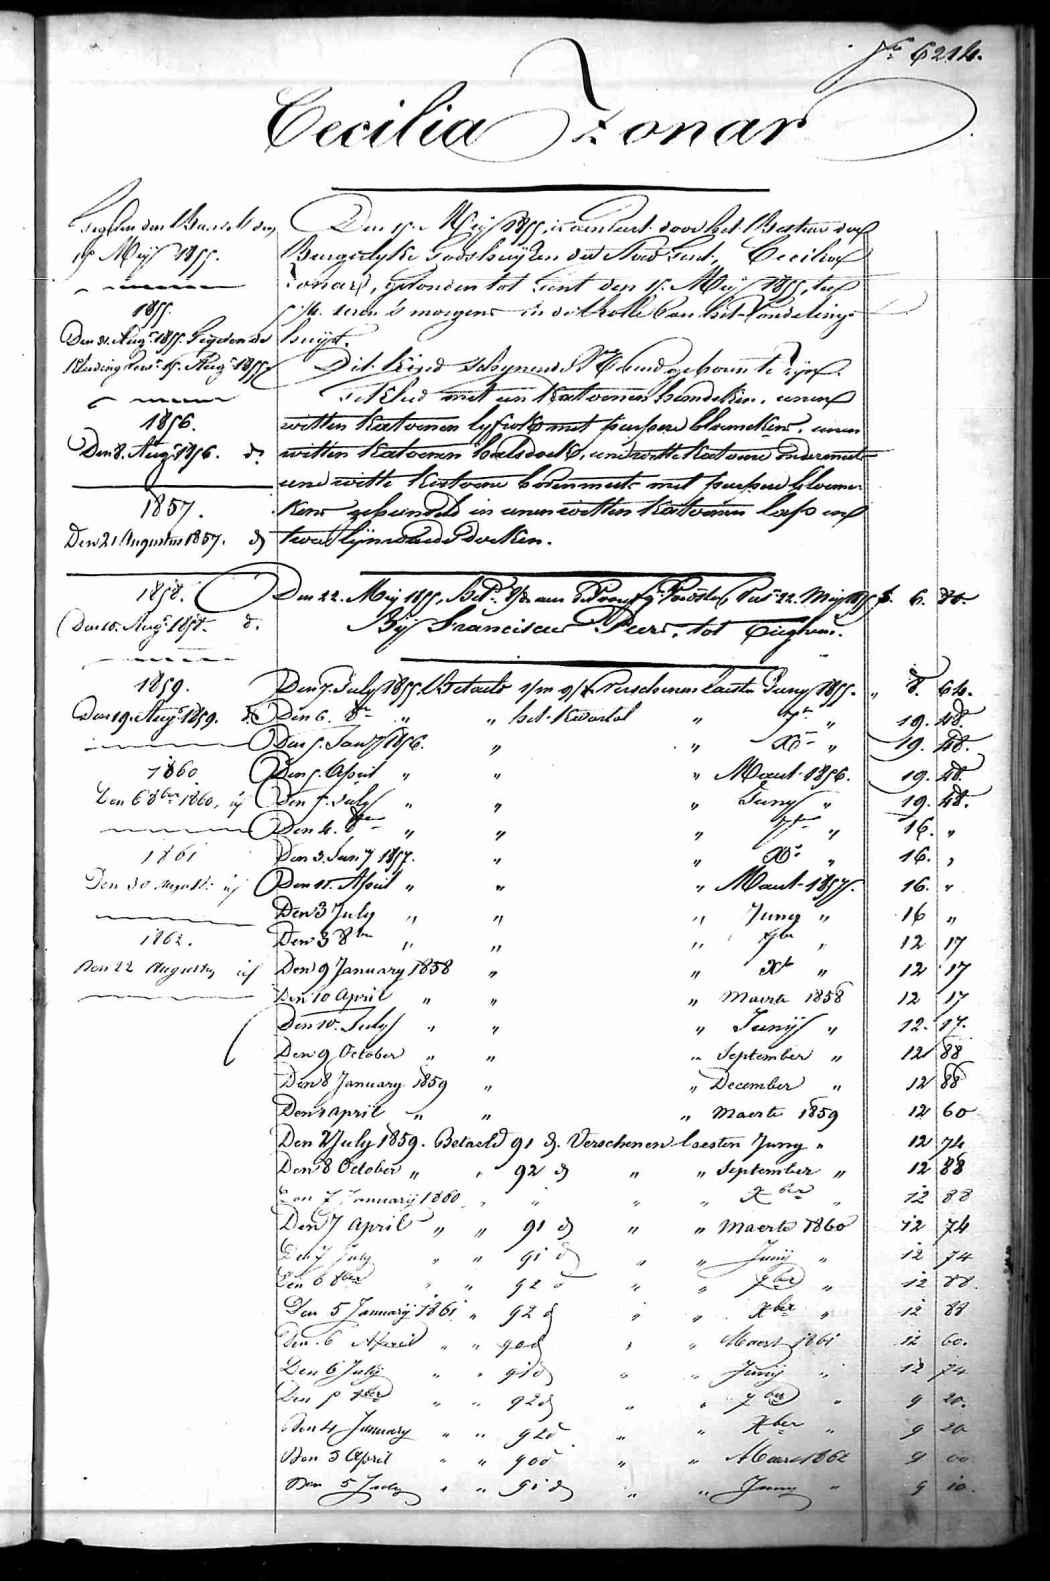 6214.
Cecilia Zonar
1855.
1856.
Den 8. Augt 1856. d.
1857.
Den 21 Augustus 1857. d
1858.
Den 10. Augt 1858. d.
1859.
Den 19. Augt 1859. d.
1860
Den 6 8ber 1860.
1861
Den 30
1862.
Den 22 Augustus
Den 15. Meij 1855, is door het Bestuer der
Burgerlyke Godshuijzen der Stad Gent, Cecilia
Zonar, gevonden tot Gent den 15. Meij 1855, ten
5 1/4 uren 's morgens in de rolle van het Vondeling
huijs.
Dit kind schynende geboren te zijn.
Gekleed met een katoenen hemdeken, eenen
witten katoenen lyfrok met purpere bloemekens, eenen
witten katoenen halsdoek, eene witte katoene ondermuts
eene witte katoene bovenmuts met purpere bloeme-
kens gebundeld in eenen witten katoenen laps en
twee lijnwaede doeken.
Den 22. Meij 1855, 6. 86.
Bij Franciscus Peers, tot
Den 7. July 1855. Betaeld verschenen laesten Juny 1855. " 8. 64.
Den 6. 8er " " het kwartal " 7er " 19. 48.
Den 5. Jany 1856. " " Xr " 19. 48.
Den 5. April " " " Maert 1856. 19. 48.
Den 5. July " " " Juny " 19. 48.
Den 4. 8er " " " 7er " 16. "
Den 3. Jany 1857. " " Xr " 16. "
Den 11. April " " " Maert 1857. 16. "
Den 3 July " " " Juny " 16 "
Den 3 8ber " " " 7ber " 12 17
Den 9 January 1858 " " Xr " 12 17
Den 10 April " " " Maerte 1858 12 17
Den 10. July " " " Junij " 12. 17.
Den 9 October " " " September " 12 88
Den 8 January 1859 " " December " 12 88
Den April " " " Maerte 1859 12 60
Den 2 July 1859. Betaeld 91 d. Verschenen laesten Juny " 12 74
Den 8 October " " 92 d " " September " 12 88
Den 7 January 1860 " " " " Xber " 12 88
Den 7 April " " 91 d " " Maerte 1860 12 74
Den 7 July " " 91 d " " Junij " 12 74
Den 6 8ber " " 92 d " " 7ber " 12 88.
Den 5 January 1861 " 92 d " " Xber " 12 88
Den 6 April " " 90 d " " Maert 1861 12 60.
Den 6 July " " 91 d " " Junij " 12 74
Den 5 8ber " " 92 d " " 7ber " 9 20.
Den 4 January " " 92 d " " Xber " 9 20
Den 5 April " " 90 d " " Maert 1862 9 00
Den 5 July " " 91 d " " Juny " 9 10.